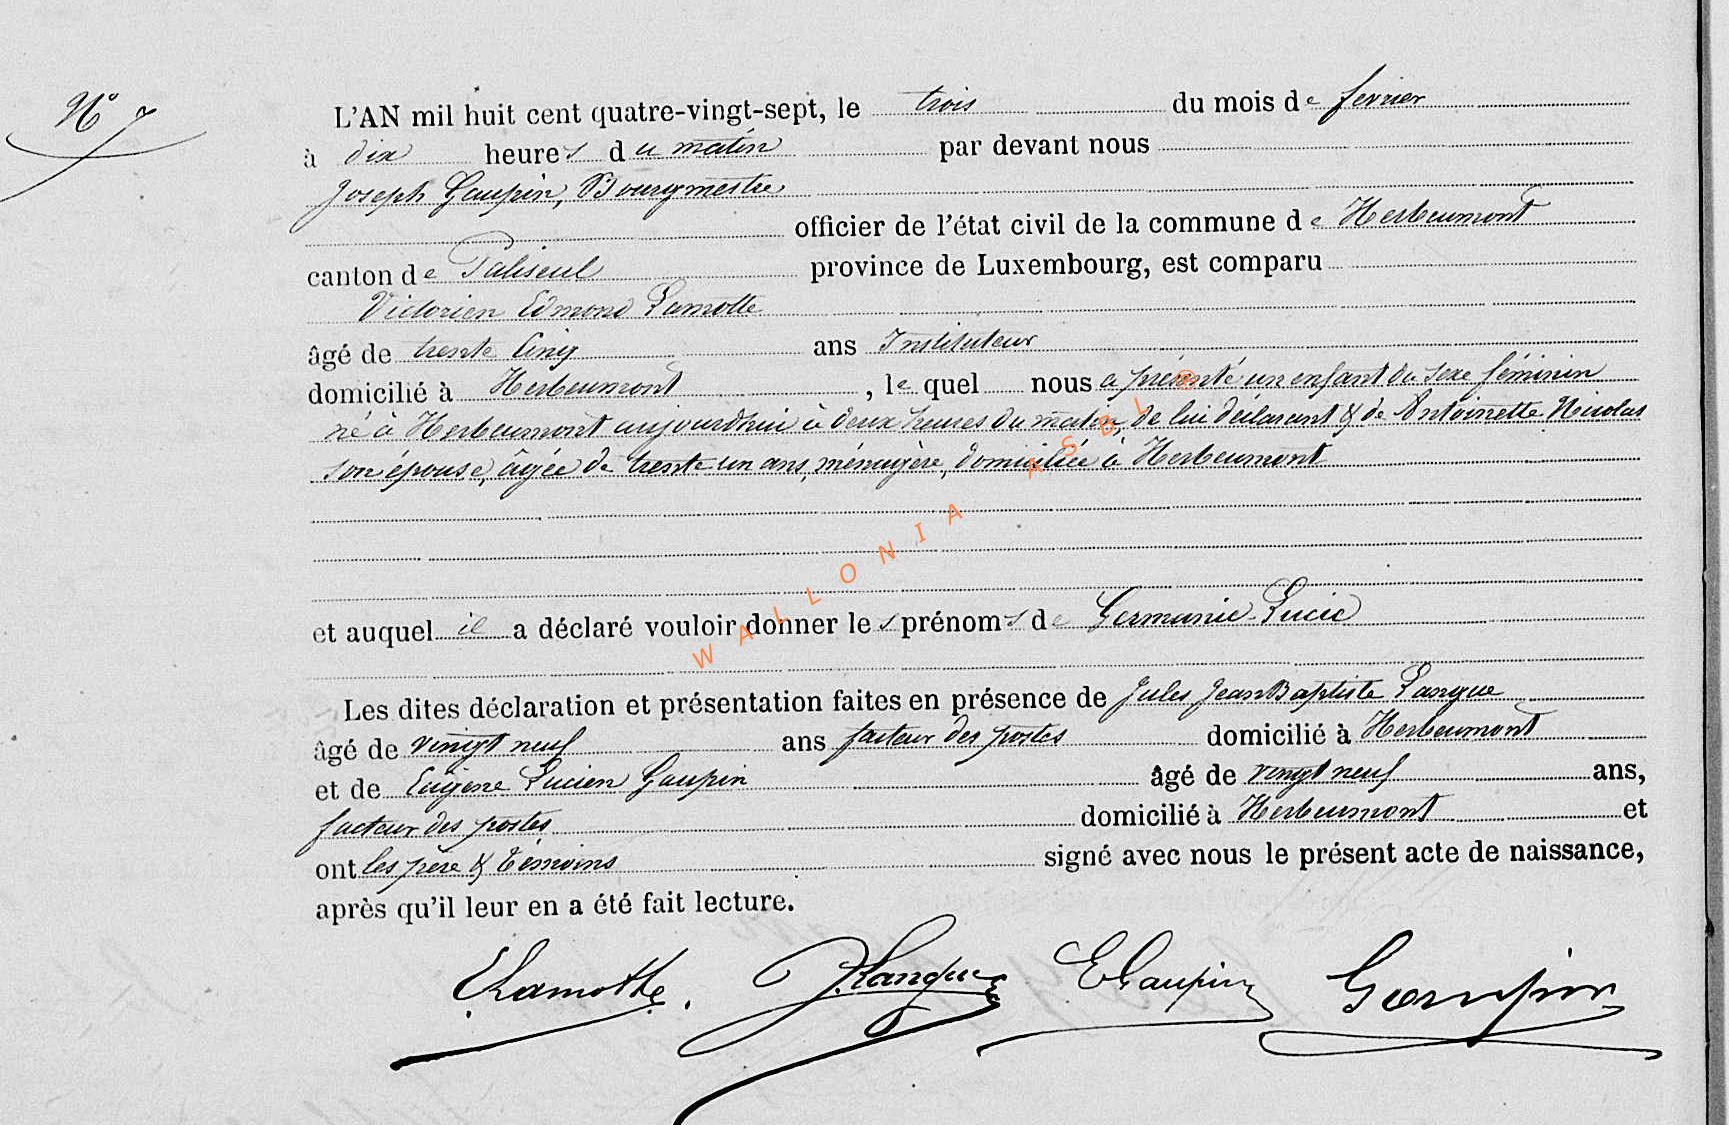 N° 7
L'AN mil huit cent quatre-vingt-sept, le trois du mois de fevrier
à dix heures du matin par devant nous
Joseph Gaupin, Bourgmestre
officier de l'état civil de la commune de Herbeumont
canton de Paliseul province de Luxembourg, est comparu
Victorien Edmond Lamotte
âgé de trente cinq ans Instituteur
domicilié à Herbeumont, le quel nous a présenté un enfant du sexe féminin
né à Herbeumont aujourd'hui à deux heures du matin, de lui déclarant & de Antoinette Nicolas
son épouse, âgée de trente un ans, ménagère, domiciliée à Herbeumont
et auquel il a déclaré vouloir donner les prénoms de Germanie-Lucie
Les dites déclaration et présentation faites en présence de Jules Jean Baptiste Langue
âgé de vingt neuf ans facteur des postes domicilié à Herbeumont
et de Eugène Lucien Gaupin âgé de vingt neuf ans,
facteur des postes domicilié à Herbeumont et
ont les père & témoins signé avec nous le présent acte de naissance,
après qu'il leur en a été fait lecture.
ELamotte. J. Langue EGaupin Gaupin
WALLONIA ASBL ©